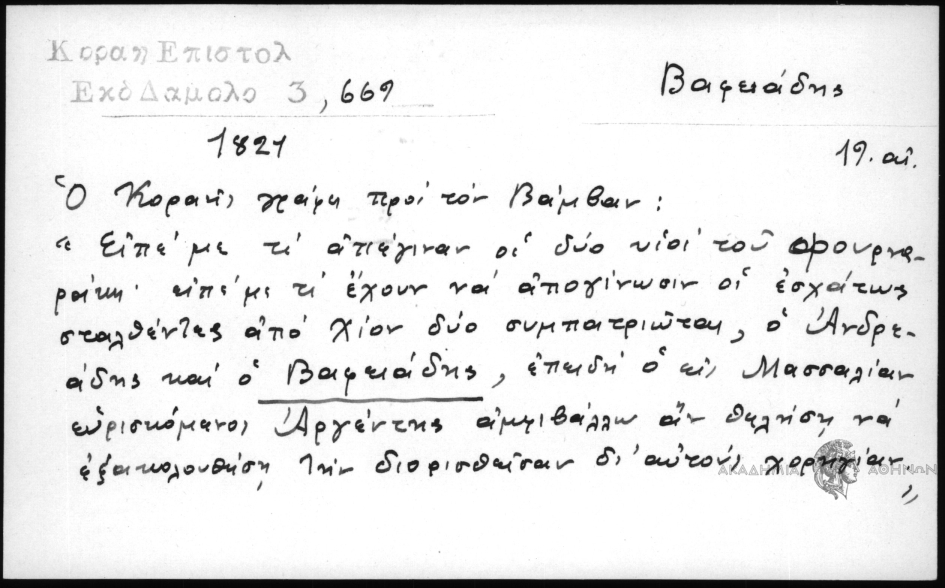 Κοραη Επιστολ
Εκδ Δαμαλα 3, 669
Βαφειάδης
1821
19. αἰ.
Ὁ Κοραῆς γράφει πρὸς τὸν Βάμβαν:
"Εἰπέ με τί ἀπέγιναν οἱ δύο υἱοὶ τοῦ Φουρνα-
ράκη· εἰπέ με τί ἔχουν νὰ ἀπογίνωσιν οἱ ἐσχάτως
σταλθέντες ἀπὸ Χίον δύο συμπατριῶται, ὁ Ἀνδρε-
άδης καὶ ὁ Βαφειάδης, ἐπειδὴ ὁ εἰς Μασσαλίαν
εὑρισκόμενος Ἀργέντης ἀμφιβάλλω ἂν θελήσῃ νὰ
ἐξακολουθήσῃ τὴν διορισθεῖσαν δι' αὐτοὺς χορηγίαν."
ΑΚΑΔΗΜΙΑ ΑΘΗΝΩΝ